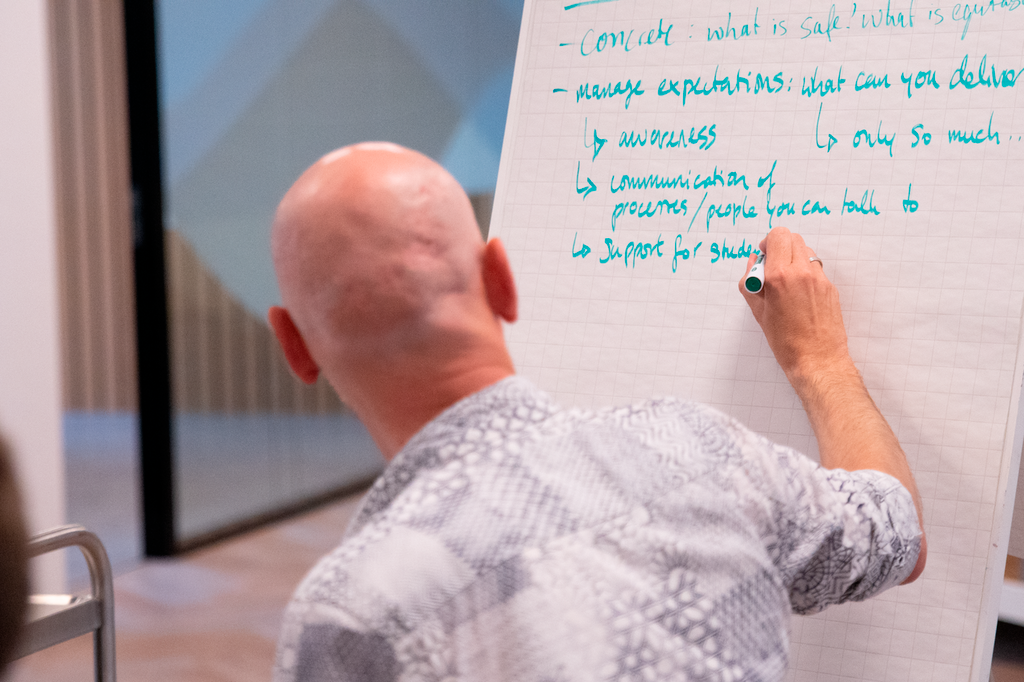 - Concrete: what is safe? What is equitab
- manage expectations: what can you deliver
↳ awareness ↳ only so much...
↳ communication of
processes/people you can talk to
↳ support for studen